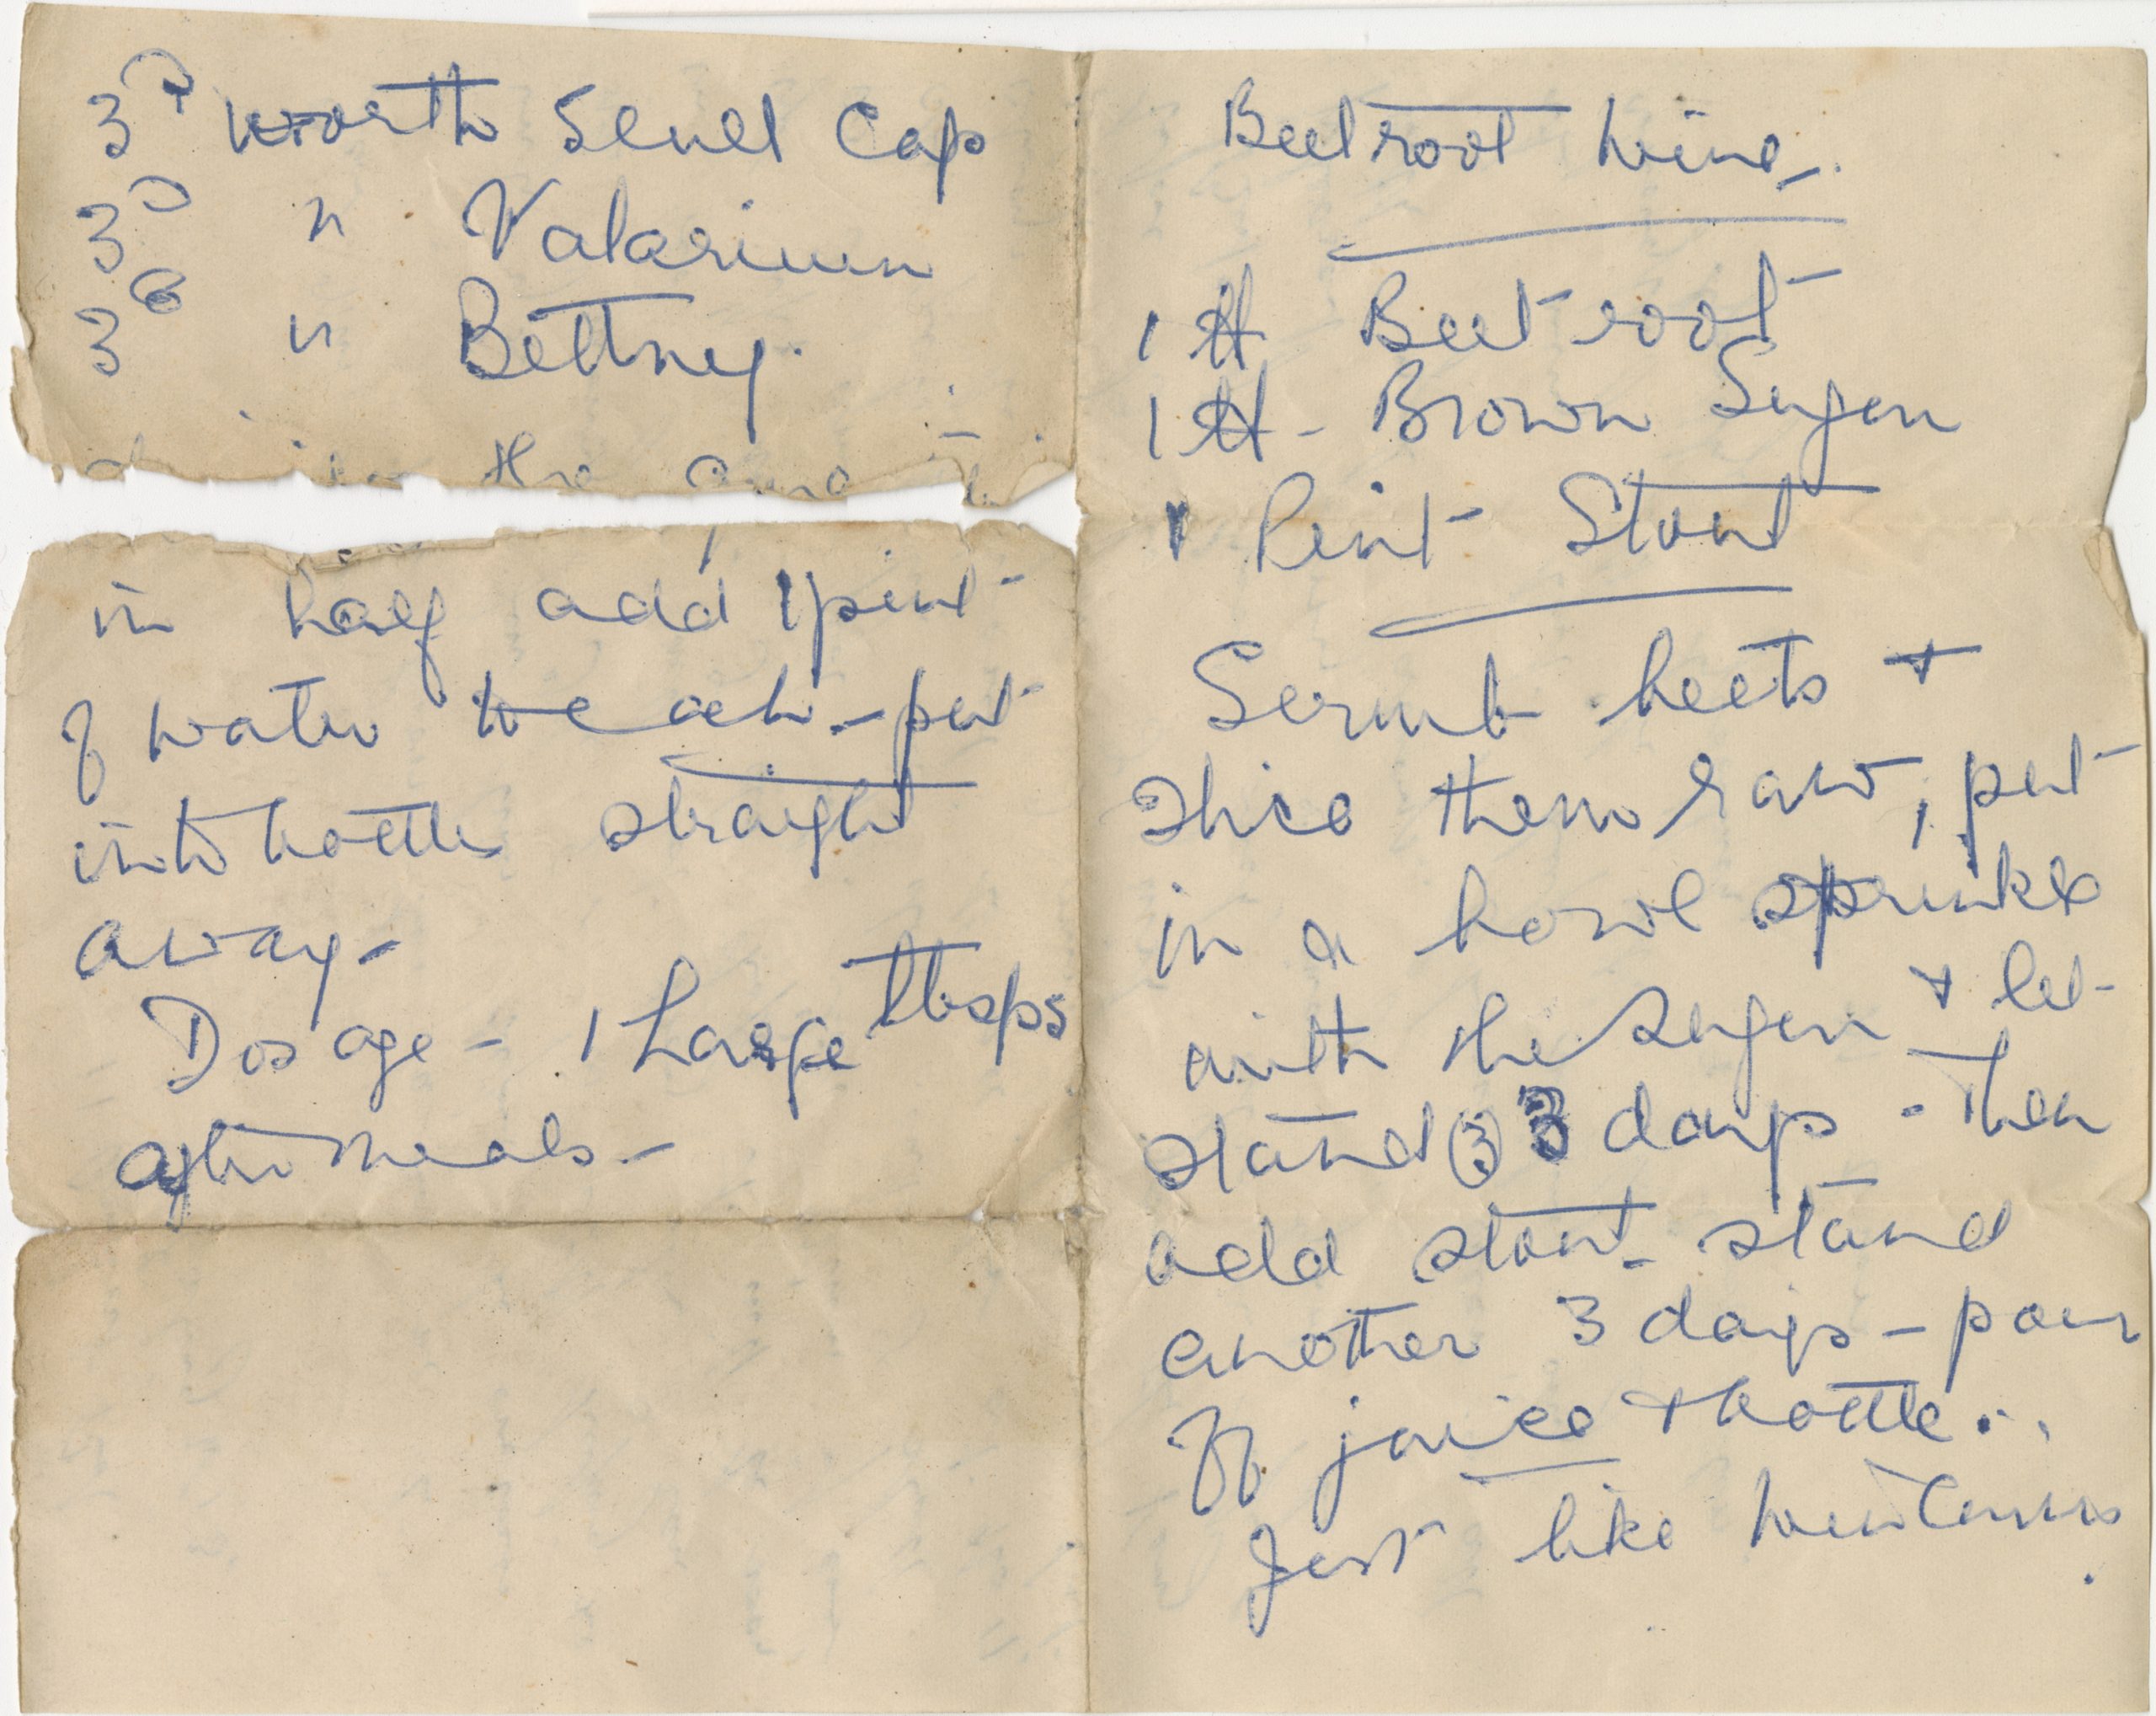 3D worth Scull Cap
3D " Valarium
3D " Bettney.
the
in half add 1 pint
of water to each - put
into bottle straight
away -
Dosage - 1 Large tbsps
after meals -
Beetroot Wine.
1 lb Beetroot
1 lb - Brown Sugar
1 Pint Stout
Scrub beets +
slice them raw, put
in a bowl sprinkle
with the sugar + let
stand (3) 3 days - Then
add stout - stand
another 3 days - pour
off juice + bottle...
Just like Wincarnis.